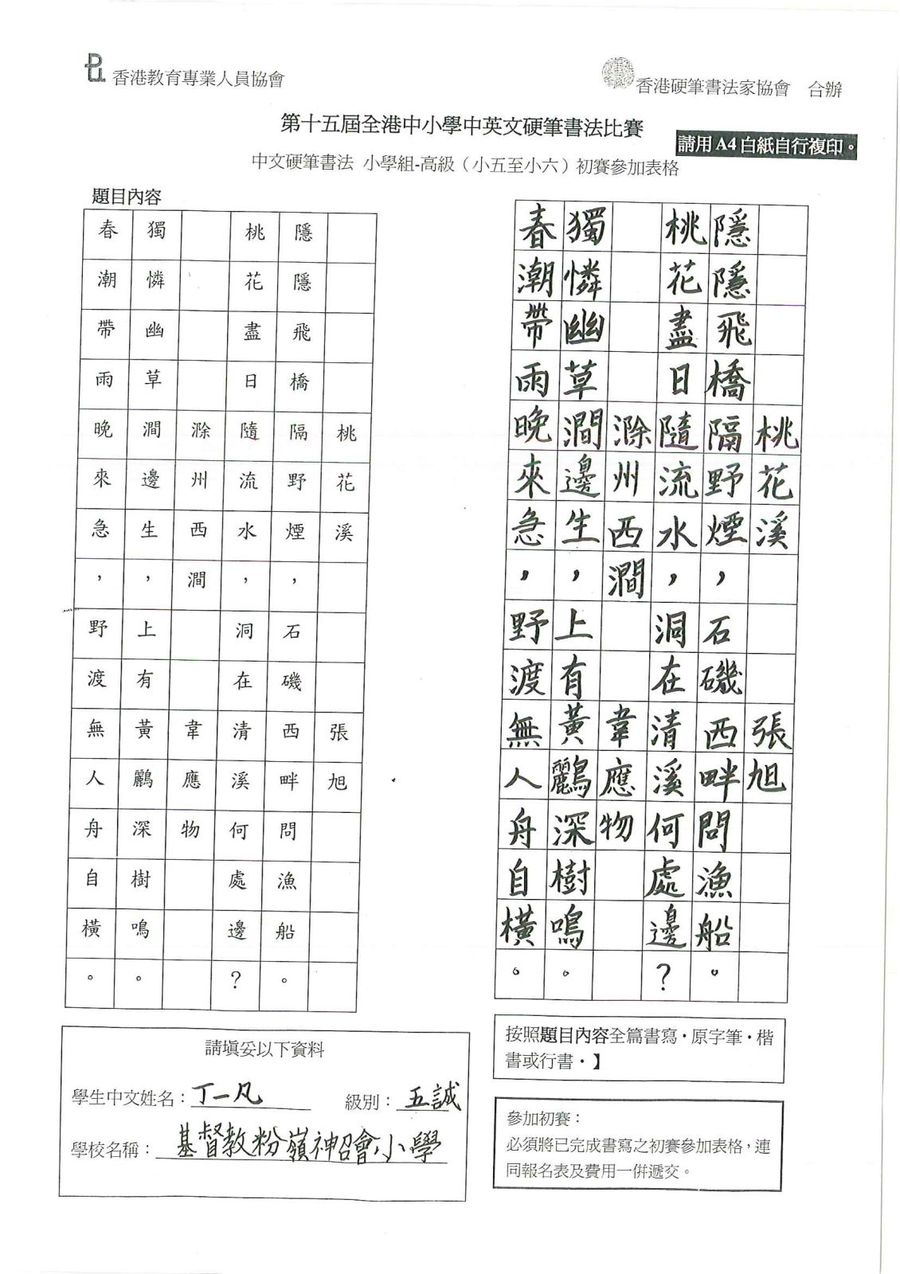 香港教育專業人員協會
香港硬筆書法家協會 合辦
第十五屆全港中小學中英文硬筆書法比賽
請用 A4 白紙自行複印。
中文硬筆書法 小學組-高級（小五至小六）初賽參加表格
題目內容
桃花溪 張旭
隱隱飛橋隔野煙，石磯西畔問漁船。
桃花盡日隨流水，洞在清溪何處邊？
滁州西澗 韋應物
獨憐幽草澗邊生，上有黃鸝深樹鳴。
春潮帶雨晚來急，野渡無人舟自橫。
桃花溪 張旭
隱隱飛橋隔野煙，石磯西畔問漁船。
桃花盡日隨流水，洞在清溪何處邊？
滁州西澗 韋應物
獨憐幽草澗邊生，上有黃鸝深樹鳴。
春潮帶雨晚來急，野渡無人舟自橫。
請填妥以下資料
學生中文姓名：丁一凡 級別：五誠
學校名稱：基督教粉嶺神召會小學
按照題目內容全篇書寫・原字筆・楷
書或行書・】
參加初賽：
必須將已完成書寫之初賽參加表格，連
同報名表及費用一併遞交。